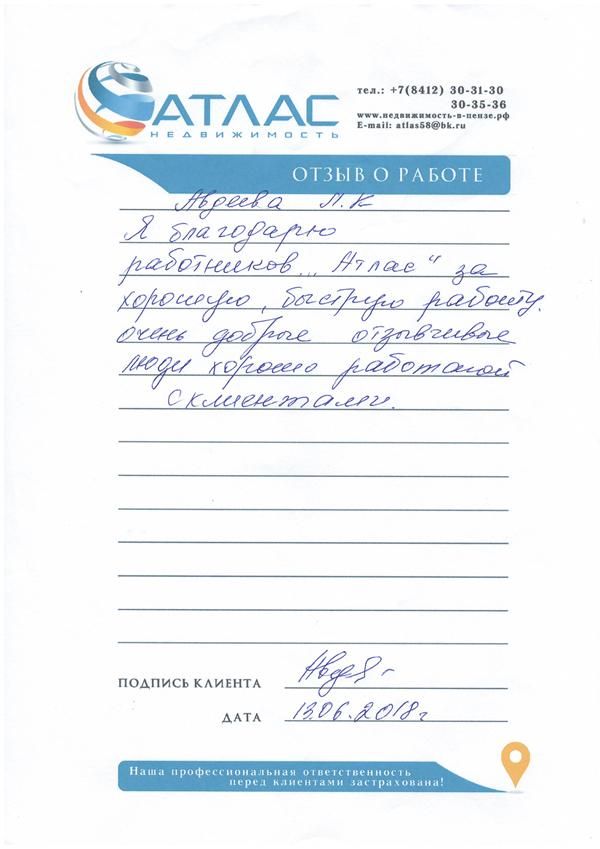 АТЛАС
НЕДВИЖИМОСТЬ
тел.: +7(8412) 30-31-30
30-35-36
www.недвижимость-в-пензе.рф
E-mail: atlas58@bk.ru
ОТЗЫВ О РАБОТЕ
Авдеева Л.К
Я благодарю
работников „Атлас“ за
хорошую, быструю работу.
очень добрые отзывчивые
люди хорошо работают
с клиентами.
ПОДПИСЬ КЛИЕНТА
ДАТА 13.06.2018г
Наша профессиональная ответственность
перед клиентами застрахована!